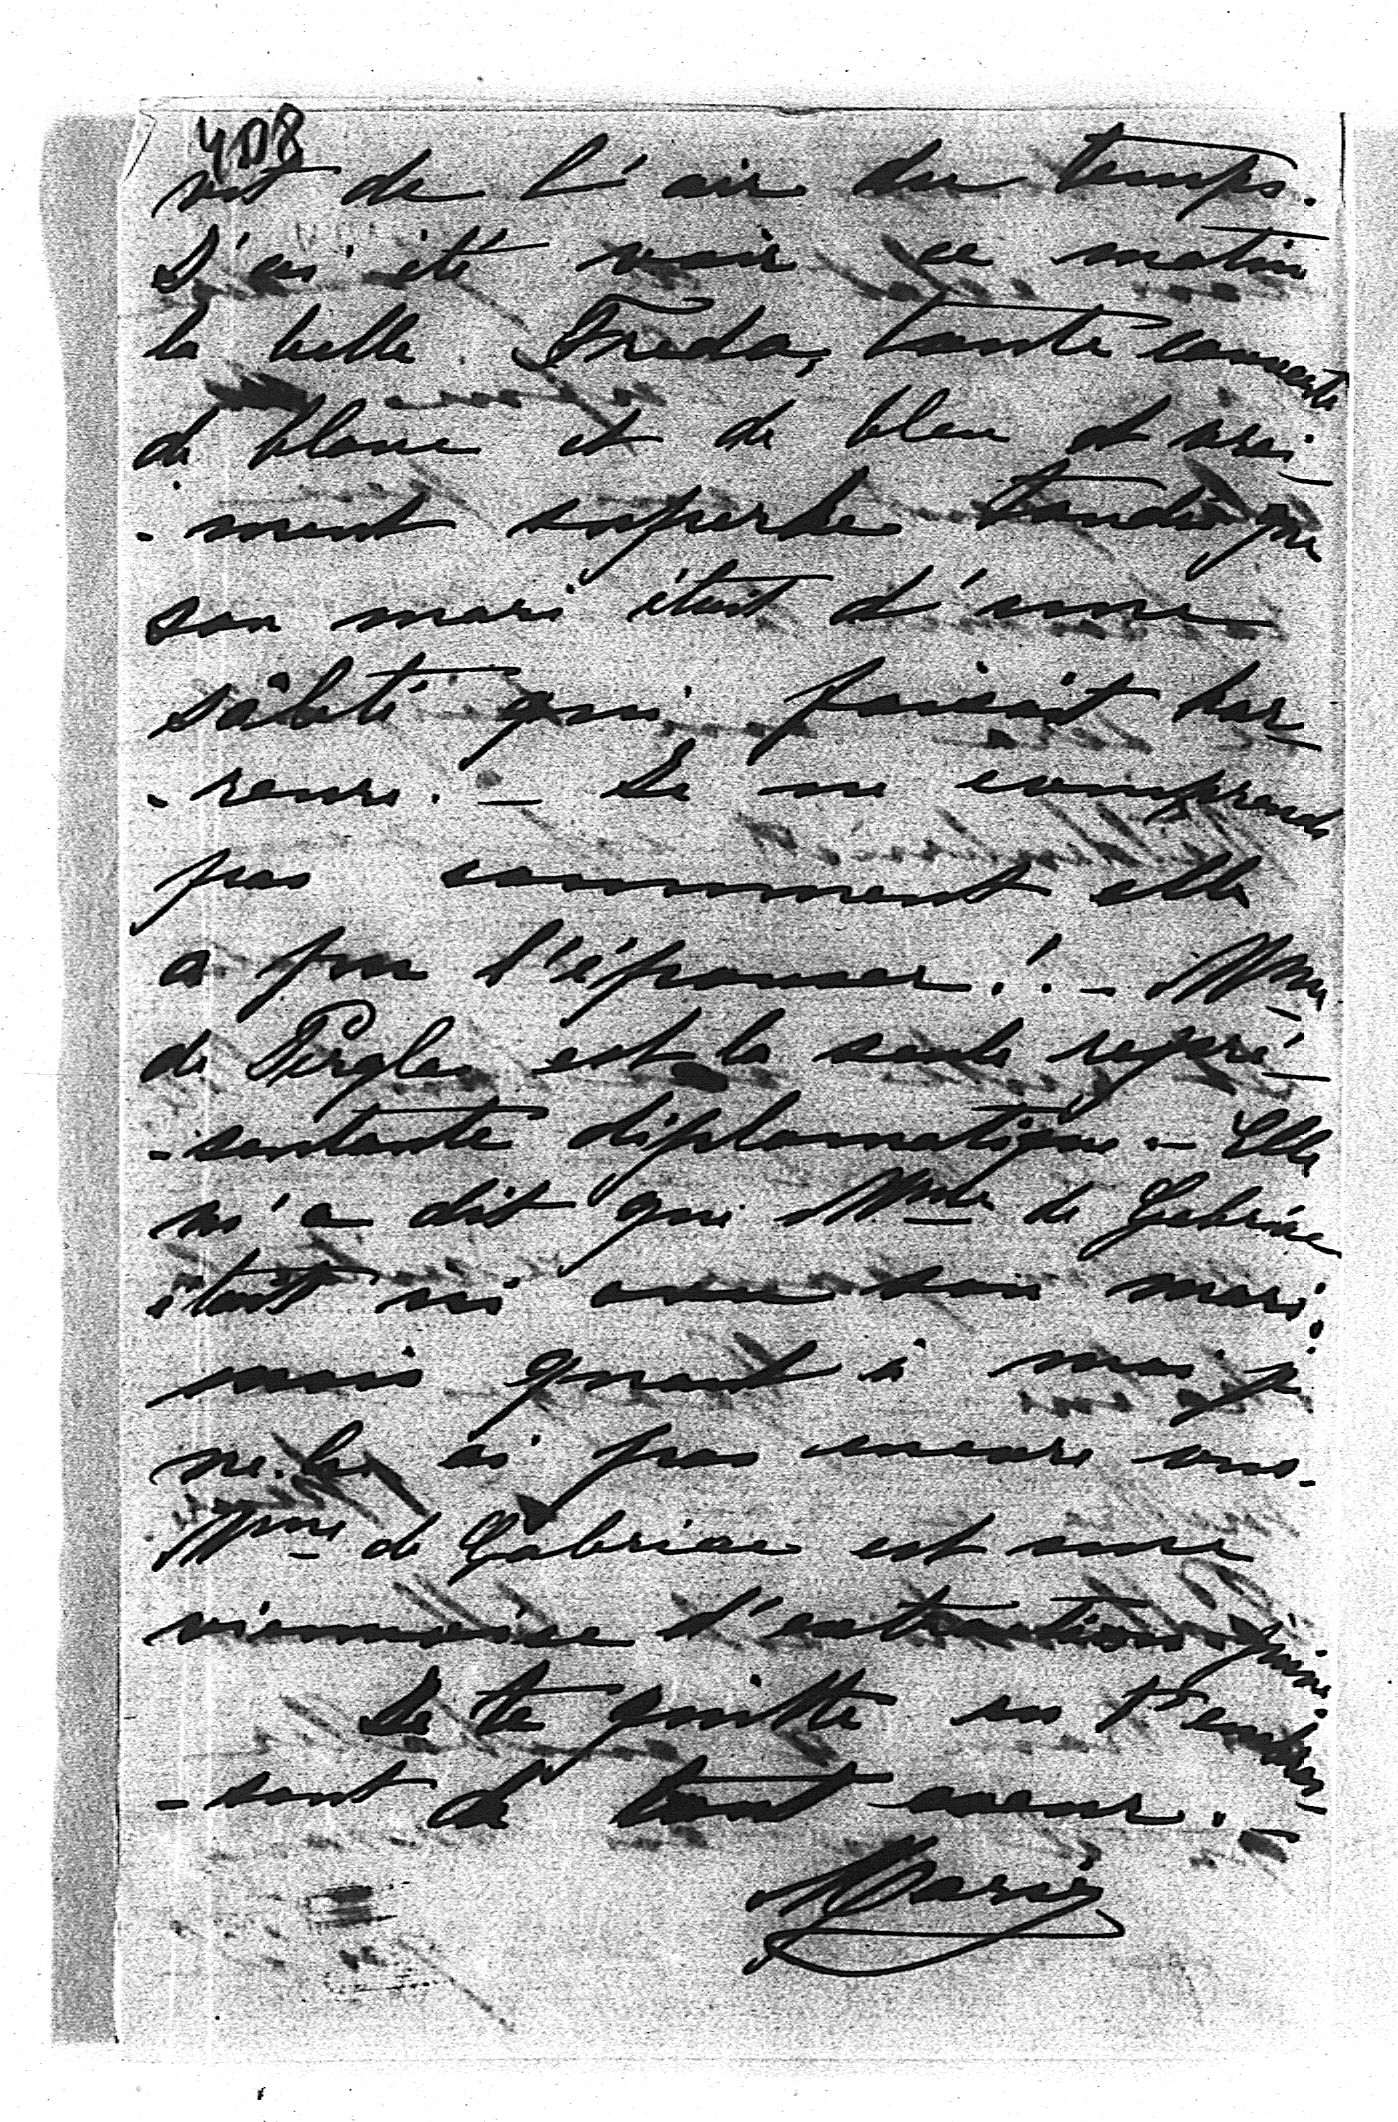 408
vit de l'air du temps.
J'ai été voir ce matin
la belle Freda, toute couverte
de blanc et de bleu et vrai-
-ment superbe tandis que
son mari était d'une
sâleté qui faisait hor-
-reur. – Je ne comprends
pas comment elle
a pu l'épouser! – Mme
de Pergler est la seule repré-
-sentante diplomatique – Elle
m'a dit que Mme de Gabriac
était ici avec son mari;
mais quant à moi je
ne les ai pas encore vus.
Mme de Gabriac est une
viennoise d'extraction juive
Je te quitte en t'embras-
-sant de tout coeur. –
Marie